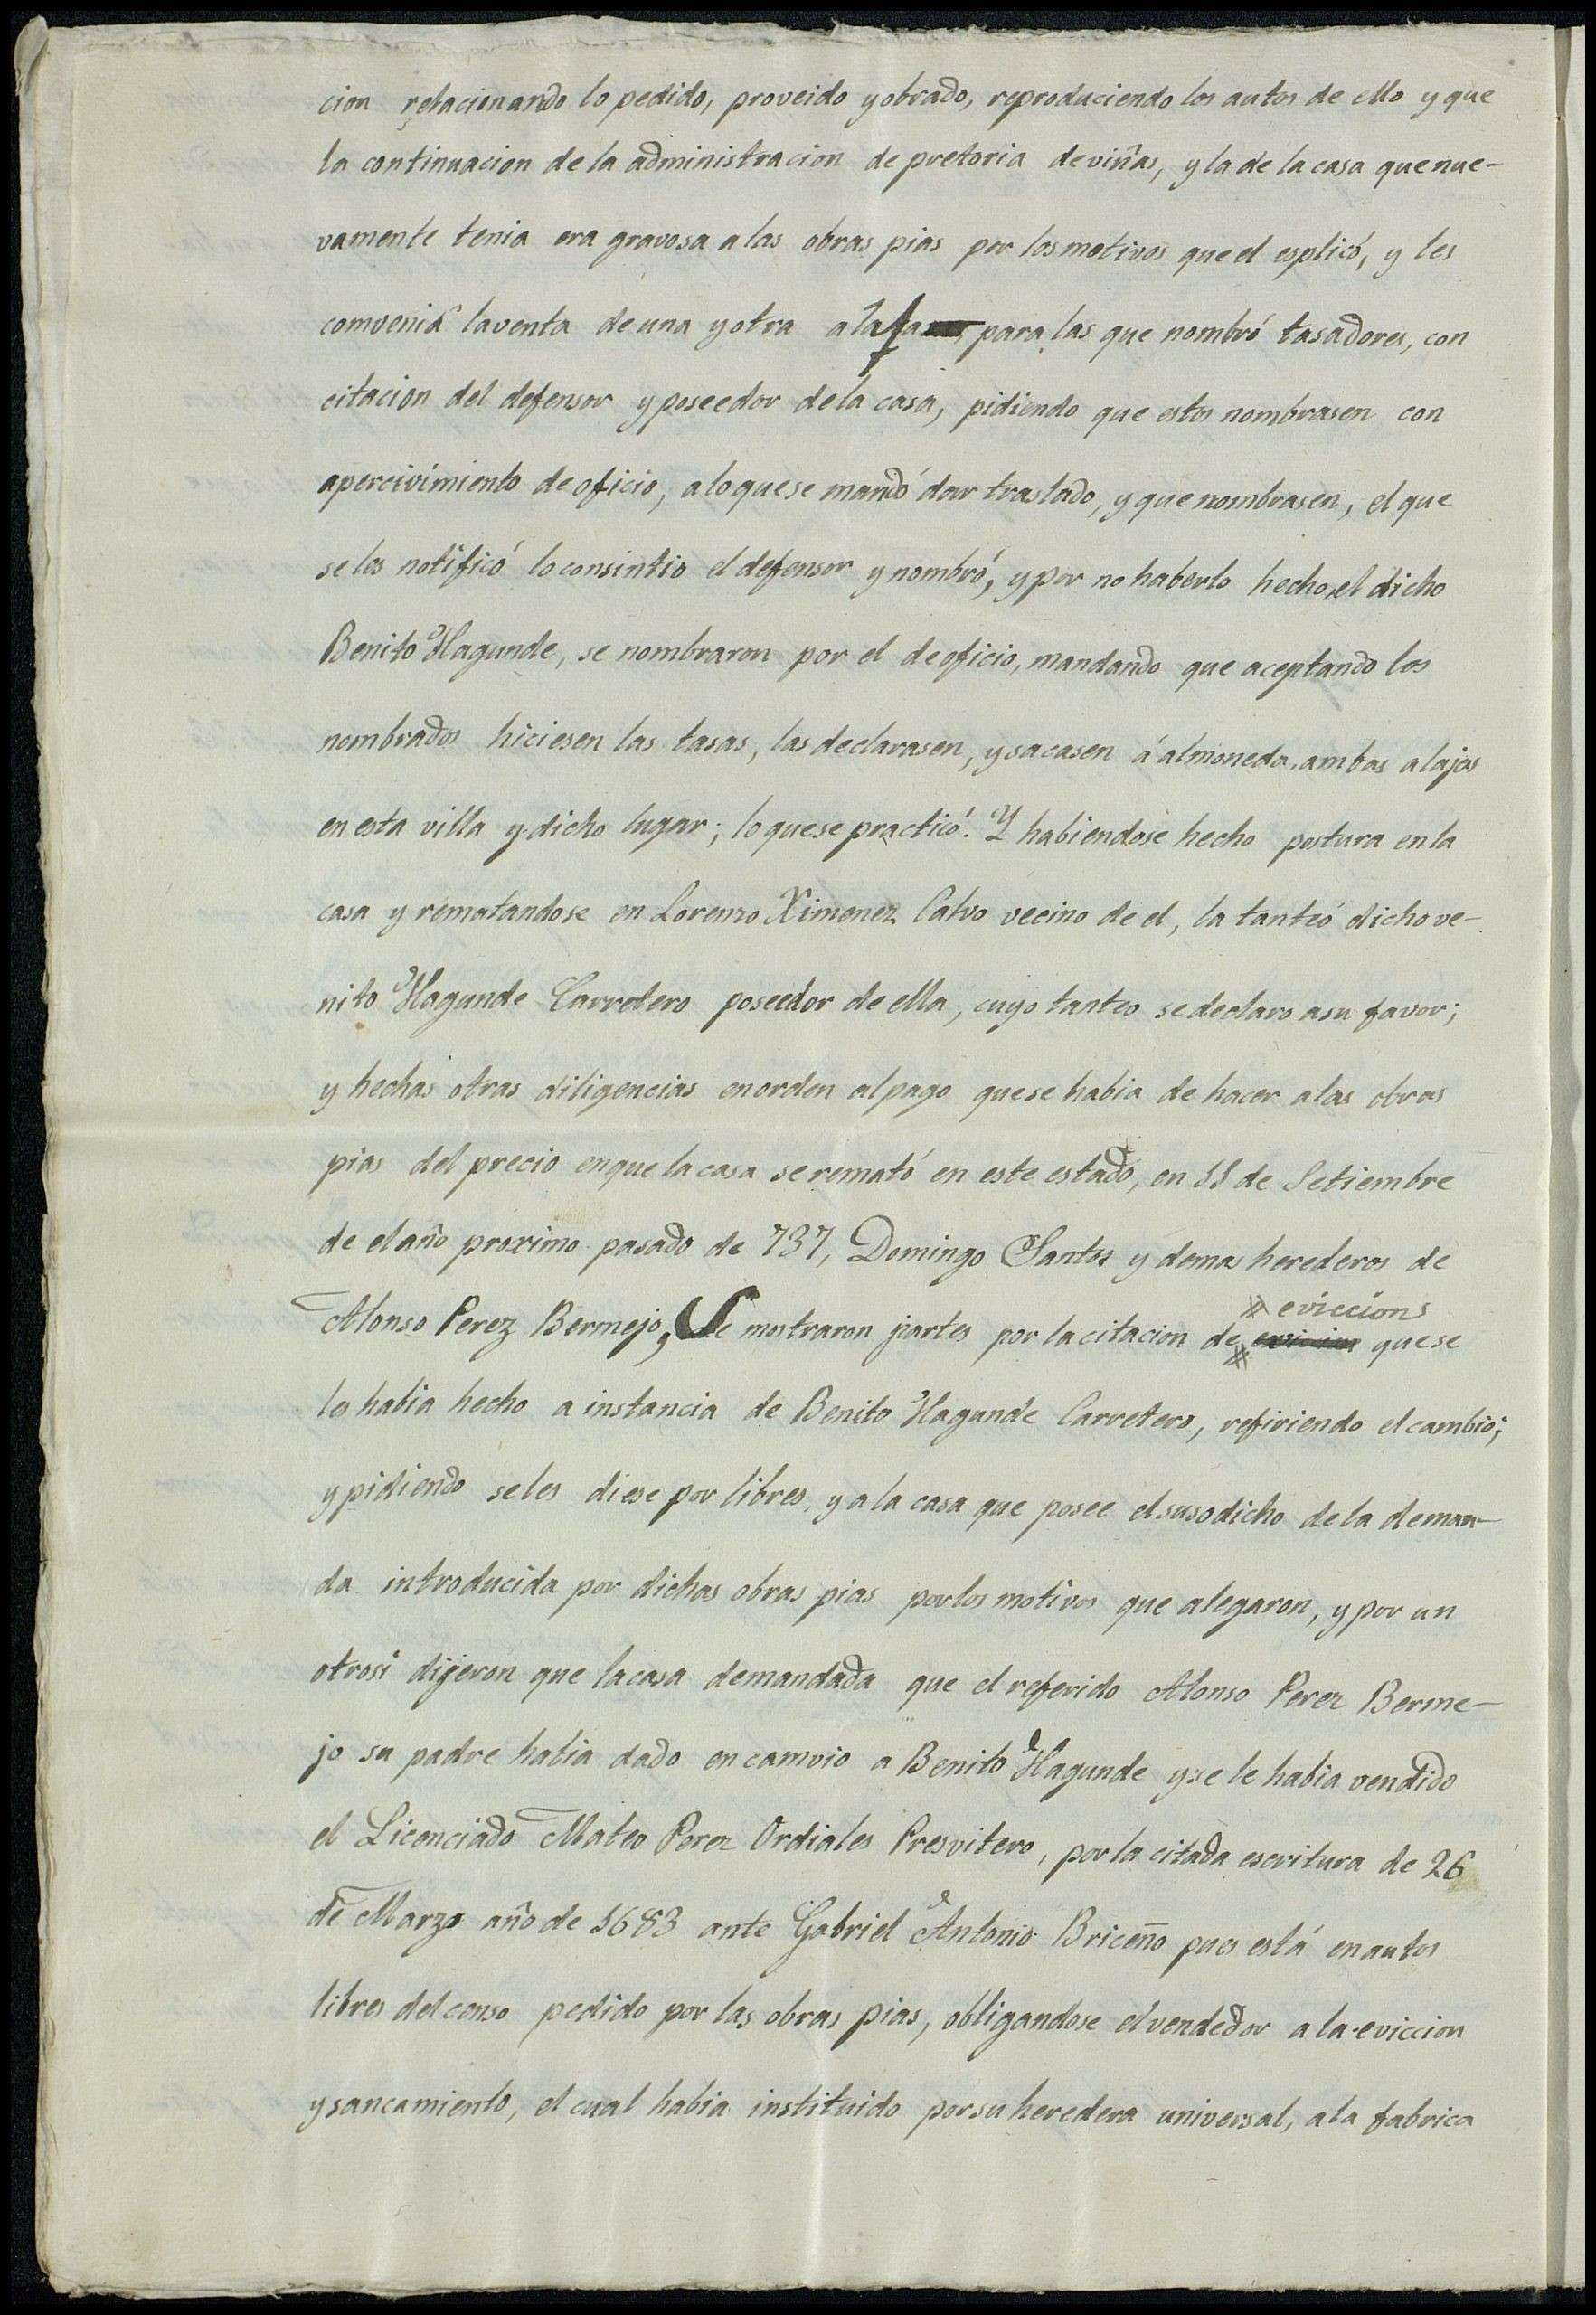 cion relacionando lo pedido, proveido y obrado, reproduciendo los autos de ello y que
la continuacion de la administracion de pretoria de viñas, y la de la casa que nue-
vamente tenia era gravosa a las obras pias por los motivos que el esplicó, y les
comvenia la venta de una y otra para las que nombró tasadores, con
citacion del defensor y poseedor de la casa, pidiendo que estos nombrasen con
apercivimiento de oficio, a lo que se mandó dar traslado, y que nombrasen, el que
se les notificó lo consintio el defensor y nombró, y por no haberlo hecho el dicho
Benito Hagunde, se nombraron por el de oficio, mandando que aceptando los
nombrados hiciesen las tasas, las declarasen, y sacasen á almoneda, ambas alajas
en esta villa y dicho lugar; lo que se practicó. Y habiendose hecho postura en la
casa y rematandose en Lorenzo Ximenez Calvo vecino de el, la tanteó dicho ve-
nito Hagunde Carretero poseedor de ella, cuyo tanteo se declaro a su favor;
y hechas otras diligencias en orden al pago que se habia de hacer a las obras
pias del precio en que la casa se remató en este estado, en 11 de Setiembre
de el año proximo pasado de 737, Domingo Santos y demas herederos de
# eviccion
Alonso Perez Bermejo, Se mostraron partes por la citacion de # que se
les habia hecho a instancia de Benito Hagunde Carretero, refiriendo el cambio;
y pidiendo se les diese por libres, y a la casa que posee el susodicho de la deman-
da introducida por dichas obras pias por los motivos que alegaron, y por un
otrosi dijeron que la casa demandada que el referido Alonso Perez Berme-
jo su padre habia dado en camvio a Benito Hagunde y se le habia vendido
el Licenciado Mateo Perez Ordiales Presvitero, por la citada escritura de 26
de Marzo año de 1683 ante Gabriel Antonio Briceño pues está en autos
libres del censo pedido por las obras pias, obligandose el vendedor a la eviccion
y saneamiento, el cual habia instituido por su heredera universal, a la fabrica